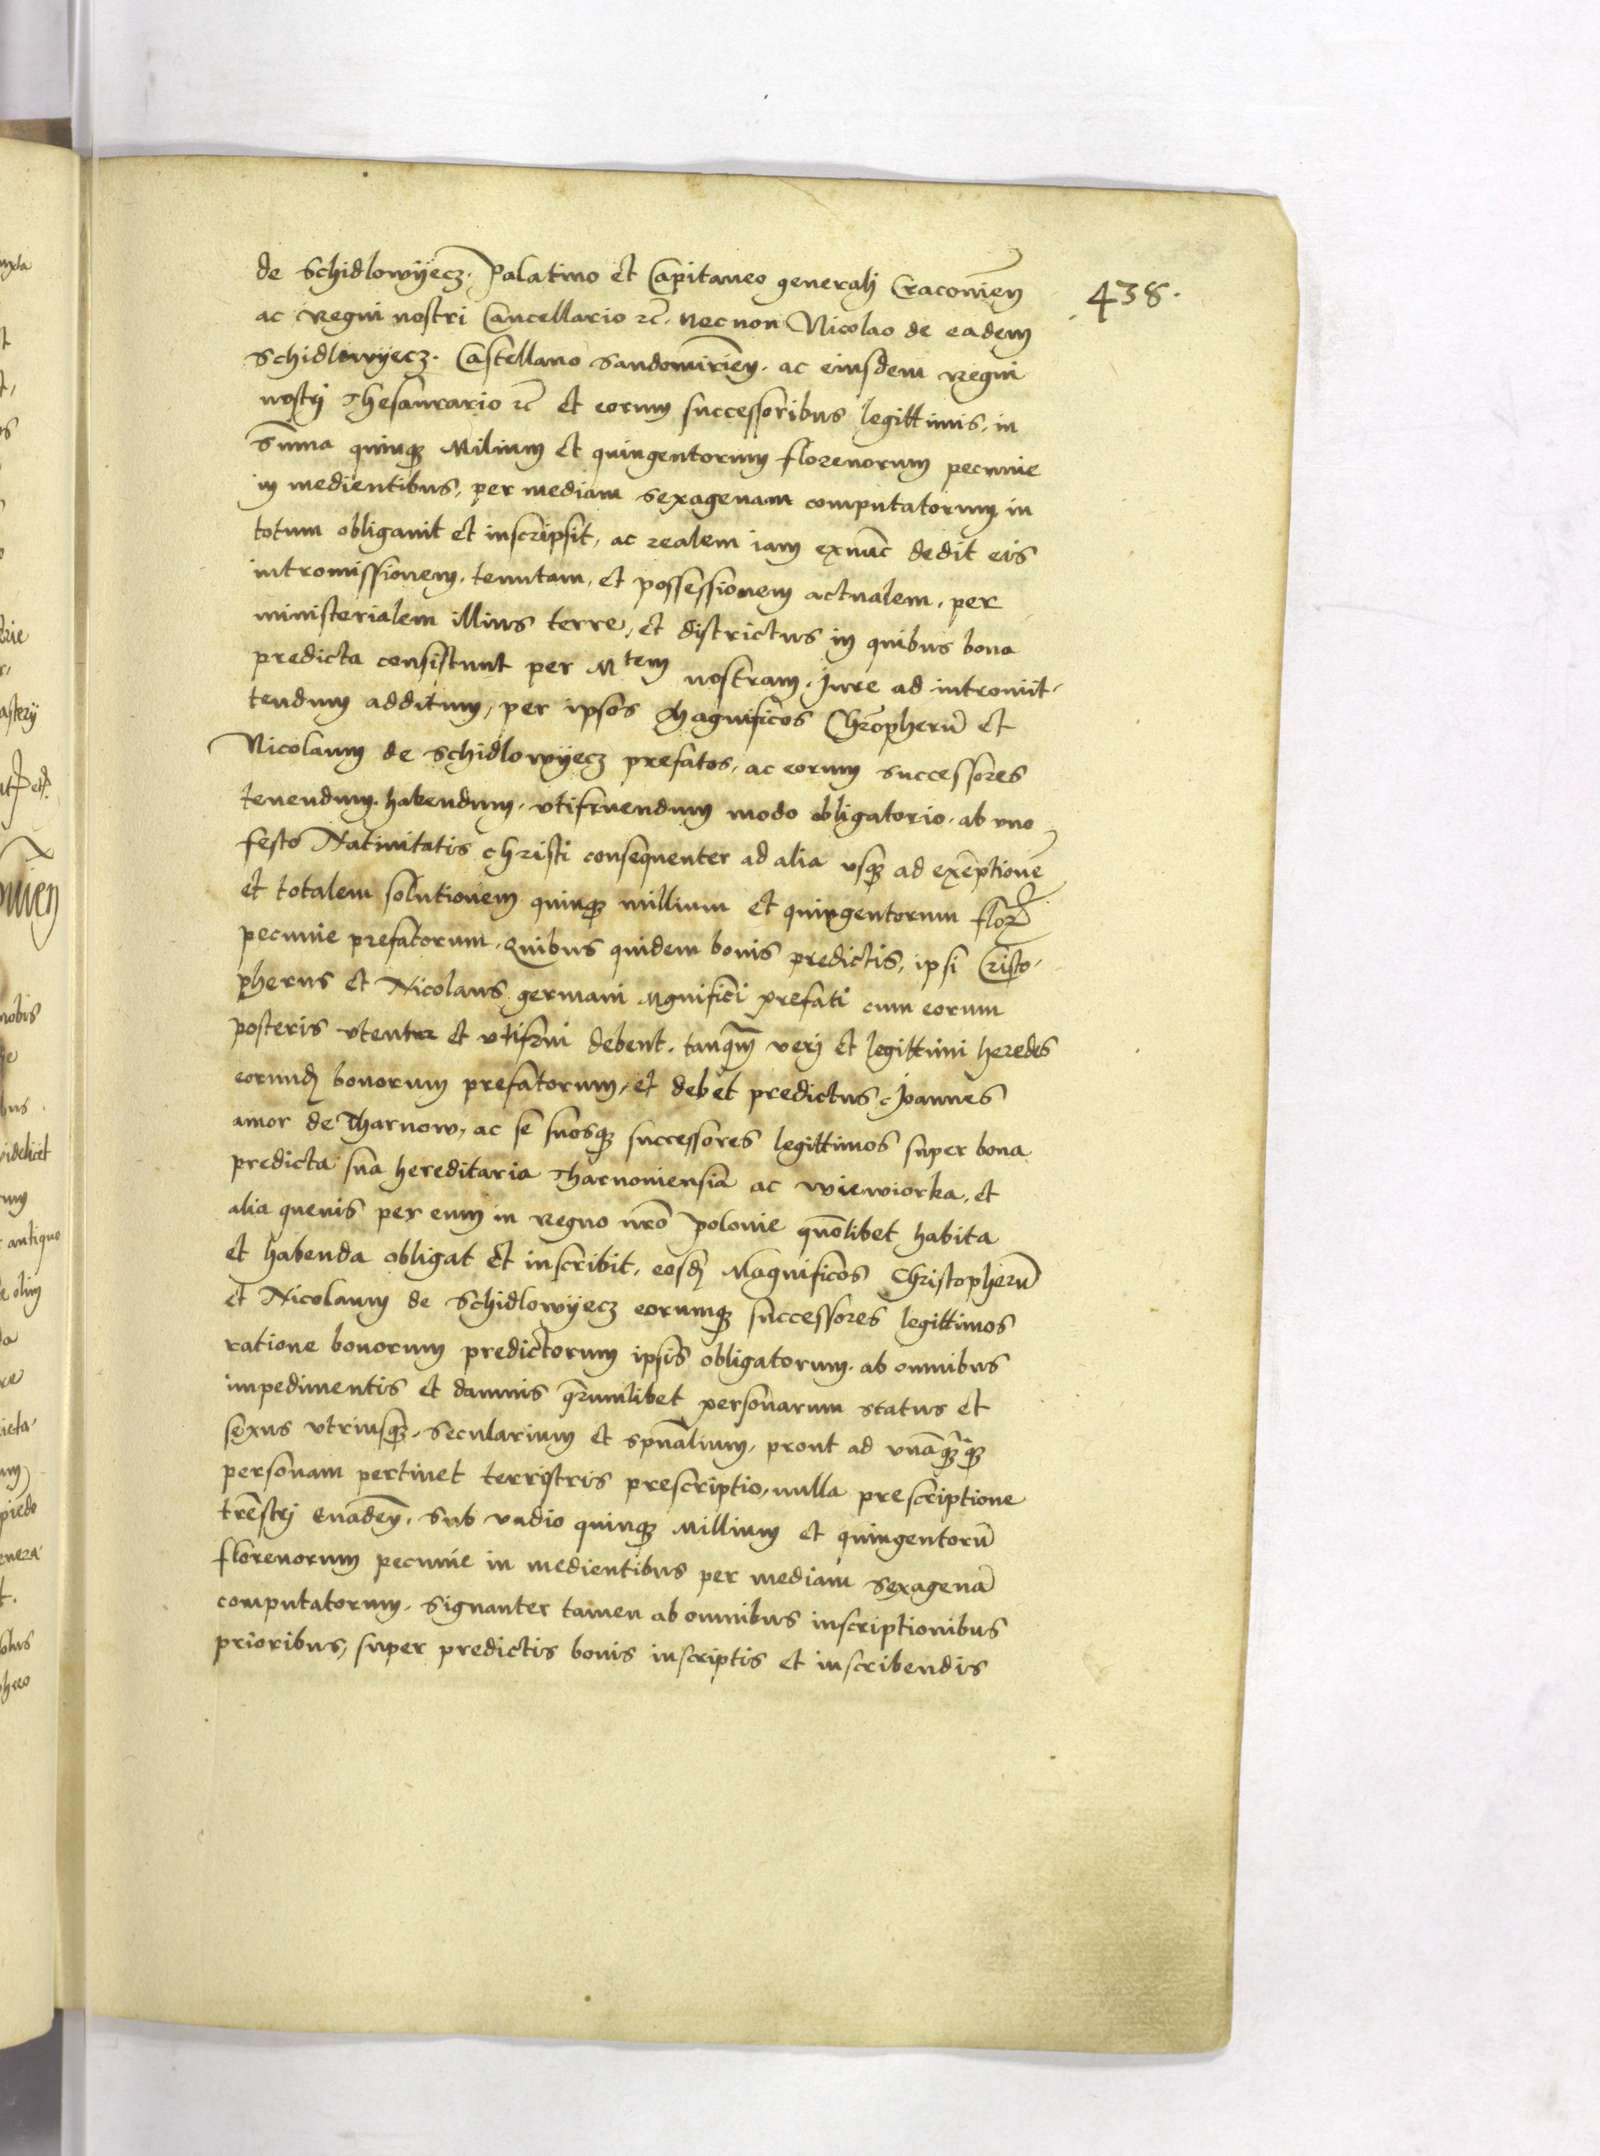 438.
de Schidlowyecz. Palatino et Capitaneo generalj Cracovieñ
ac Regni nostri Cancellario zc̃. Necnon Nicolao de eadem
Schidlowyecz. Castellano Sandomirieñ. ac eiusdem Regni
nostrj Thesaurario zc̃ et eorum successoribus legittimis, in
Sum̃a quinqʒ Milium et quingentorum florenorum pecunie
in medientibus, per mediam sexagenam computatorum in
totum obligavit et inscripsit, ac realem iam exnũc dedit eis
intromissionem. tenutam, et possessionem actualem, per
ministerialem illius terre, et districtus in quibus bona
predicta consistunt per Mtem nostram. Jure ad intromit-
tendum additum, per ipsos Magnificos Chr̃opherũ et
Nicolaum de Schidlowyecz prefatos, ac eorum successores
tenendum. habendum. vtifruendum modo obligatorio. ab vno
festo Nativitatis christi consequenter ad alia vsqʒ ad exẽptionẽ
et totalem solutionem quinqʒ millium et quingentorum flor̃
pecunie prefatorum. Quibus quidem bonis predictis, ipsi Cristo-
pherus et Nicolaus germani Mgnifici prefati cum eorum
posteris vtentur et vtifrui debent, tanq̃m verj et legittimi heredes
eorundẽ bonorum prefatorum, et debet predictus Joannes
amor de Tharnow, ac se suosqʒ successores legittimos super bona
predicta sua hereditaria Tharnoviensia ac Wiewiorka, et
alia quevis per eum in Regno nr̃o Polonie quõlibet habita
et habenda obligat et inscribit, eosdẽ Magnificos Christopherũ
et Nicolaum de Schidlowyecz eorumqʒ successores legittimos
ratione bonorum predictorum ipsis obligatorum. ab omnibus
impedimentis et damnis q̃rumlibet personarum status et
sexus vtriusqʒ, Secularium et spũalium, prout ad vnãqʒqʒ
personam pertinet terrestris prescriptio, nulla prescriptione
trẽstrj evadeñ. Sub vadio quinqʒ Millium et quingentorũ
florenorum pecunie in medientibus per mediam Sexagenã
computatorum. Signanter tamen ab omnibus inscriptionibus
prioribus, super predictis bonis inscriptis et inscribendis